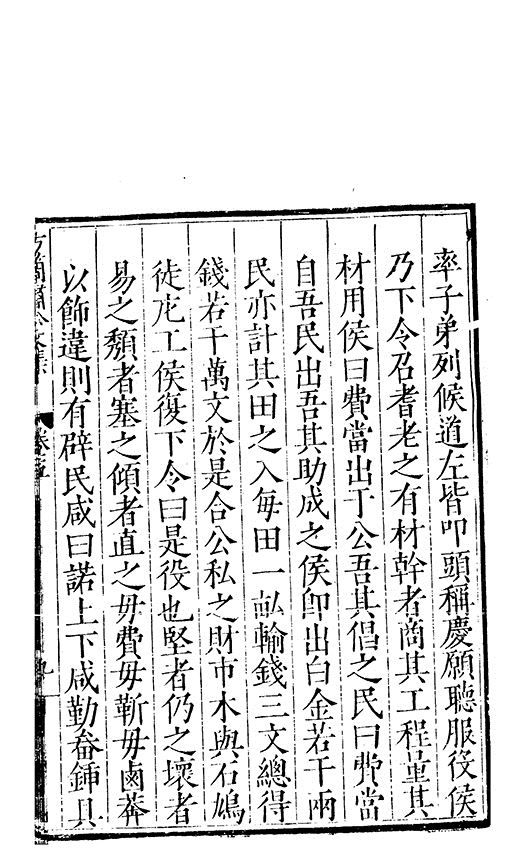 率子弟列候道左皆叩頭稱慶願聽服役侯
乃下令召耆老之有材幹者商其工程量其
材用侯曰費當出于公吾其倡之民曰費當
自吾民出吾其助成之侯卽出白金若干兩
民亦計其田之入每田一畝輸錢三文總得
錢若干萬文於是合公私之財市木與石鳩
徒庀工侯復下令曰是役也堅者仍之壞者
易之頽者塞之傾者直之毋費毋靳毋鹵莽
以飾違則有辟民咸曰諾上下咸勤畚鍤具